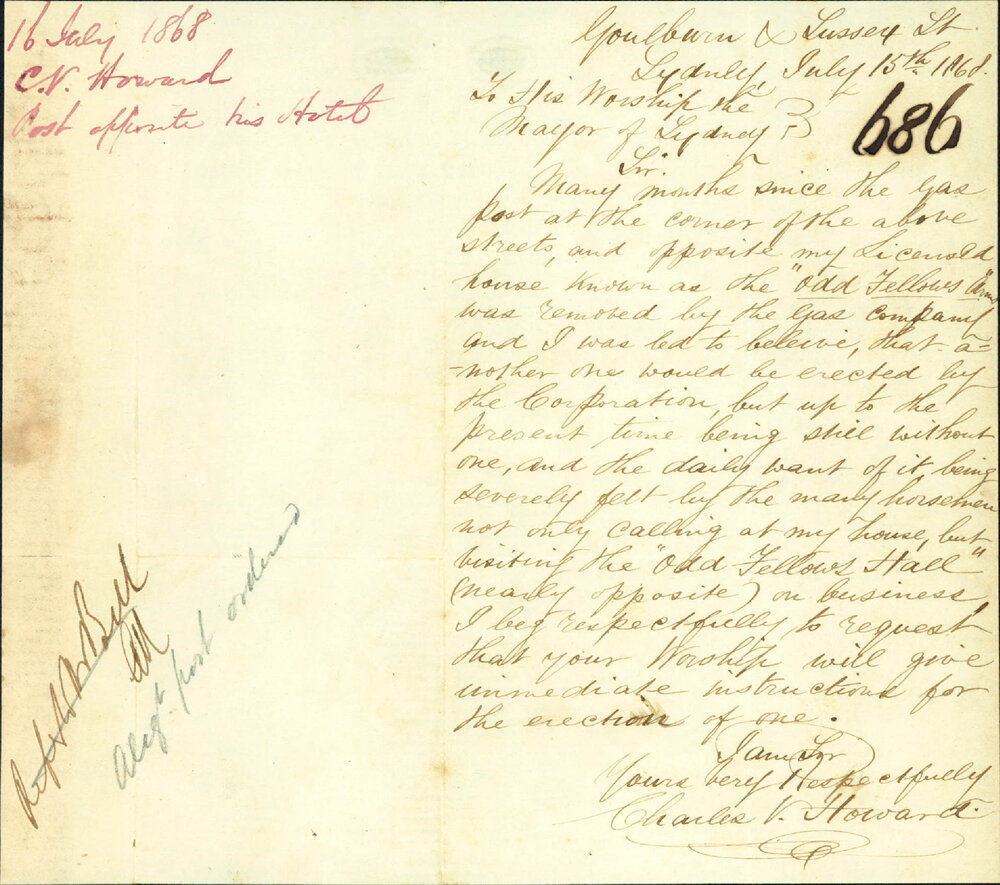 16 July 1868
C.V. Howard
Post opposite his Hotel
Goulburn & Sussex St.
Sydney, July 15th 1868.
To His Worship the
Mayor of Sydney
686
Sir.
Many months since the gas
post at the corner of the above
streets, and opposite my Licensed
house known as the "Odd Fellows Arms"
was removed by the Gas company
and I was led to beleive, that a-
-nother one would be erected by
the Corporation, but up to the
present time being still without
one, and the daily want of it, being
severely felt by the many horsemen
not only calling at my house, but
visiting the "Odd Fellows Hall"
(nearly opposite) on business,
I beg respectfully to request
that your Worship will give
immediate instructions for
the erection of one.
I am Sir
Yours very Respectfully
Charles V. Howard.
Mr Bell
post ordered